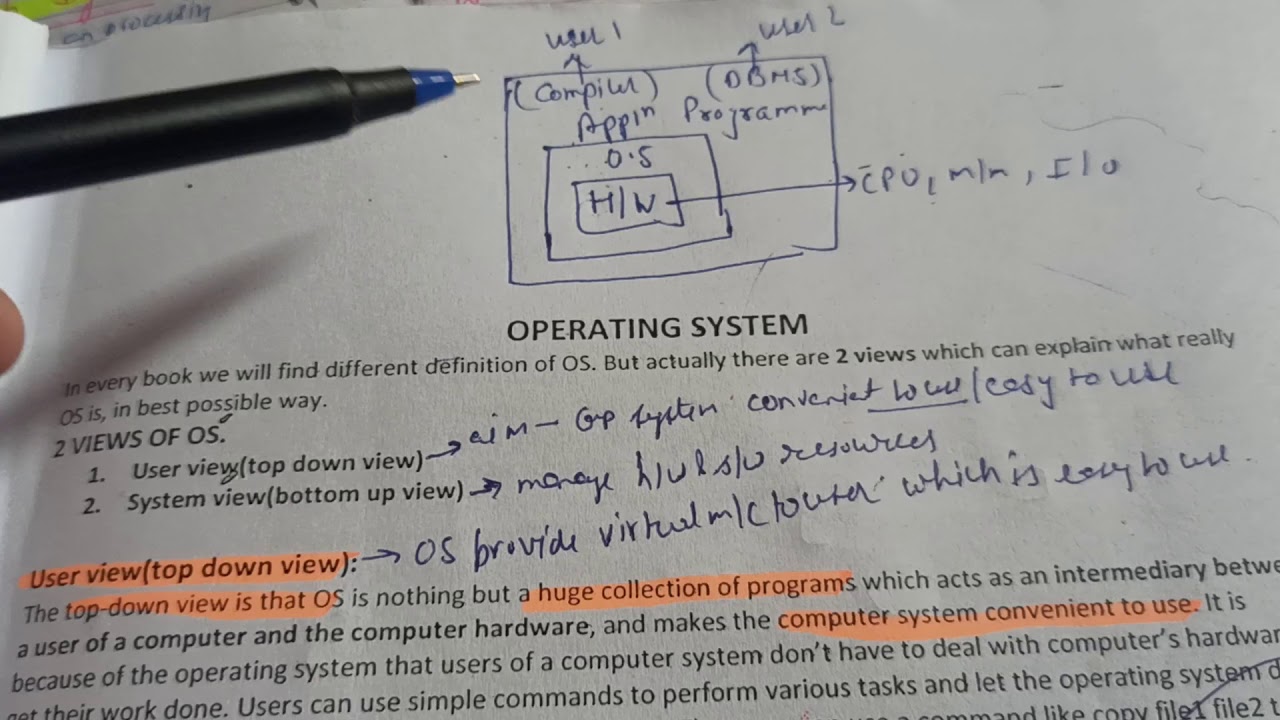 on processing
user 1
user 2
(Compiler) (DBMS)
Appln Programme
O.S
H/W
CPU, m/m, I/O
OPERATING SYSTEM
In every book we will find different definition of OS. But actually there are 2 views which can explain what really
OS is, in best possible way.
2 VIEWS OF OS.
1. User view(top down view) → aim – system convenient to use/easy to use
2. System view(bottom up view) → manage h/w & s/w resources
User view(top down view): → OS provide virtual m/c to user which is easy to use.
The top-down view is that OS is nothing but a huge collection of programs which acts as an intermediary betwe
a user of a computer and the computer hardware, and makes the computer system convenient to use. It is
because of the operating system that users of a computer system don't have to deal with computer's hardwar
get their work done. Users can use simple commands to perform various tasks and let the operating system d
command like copy file1 file2 t